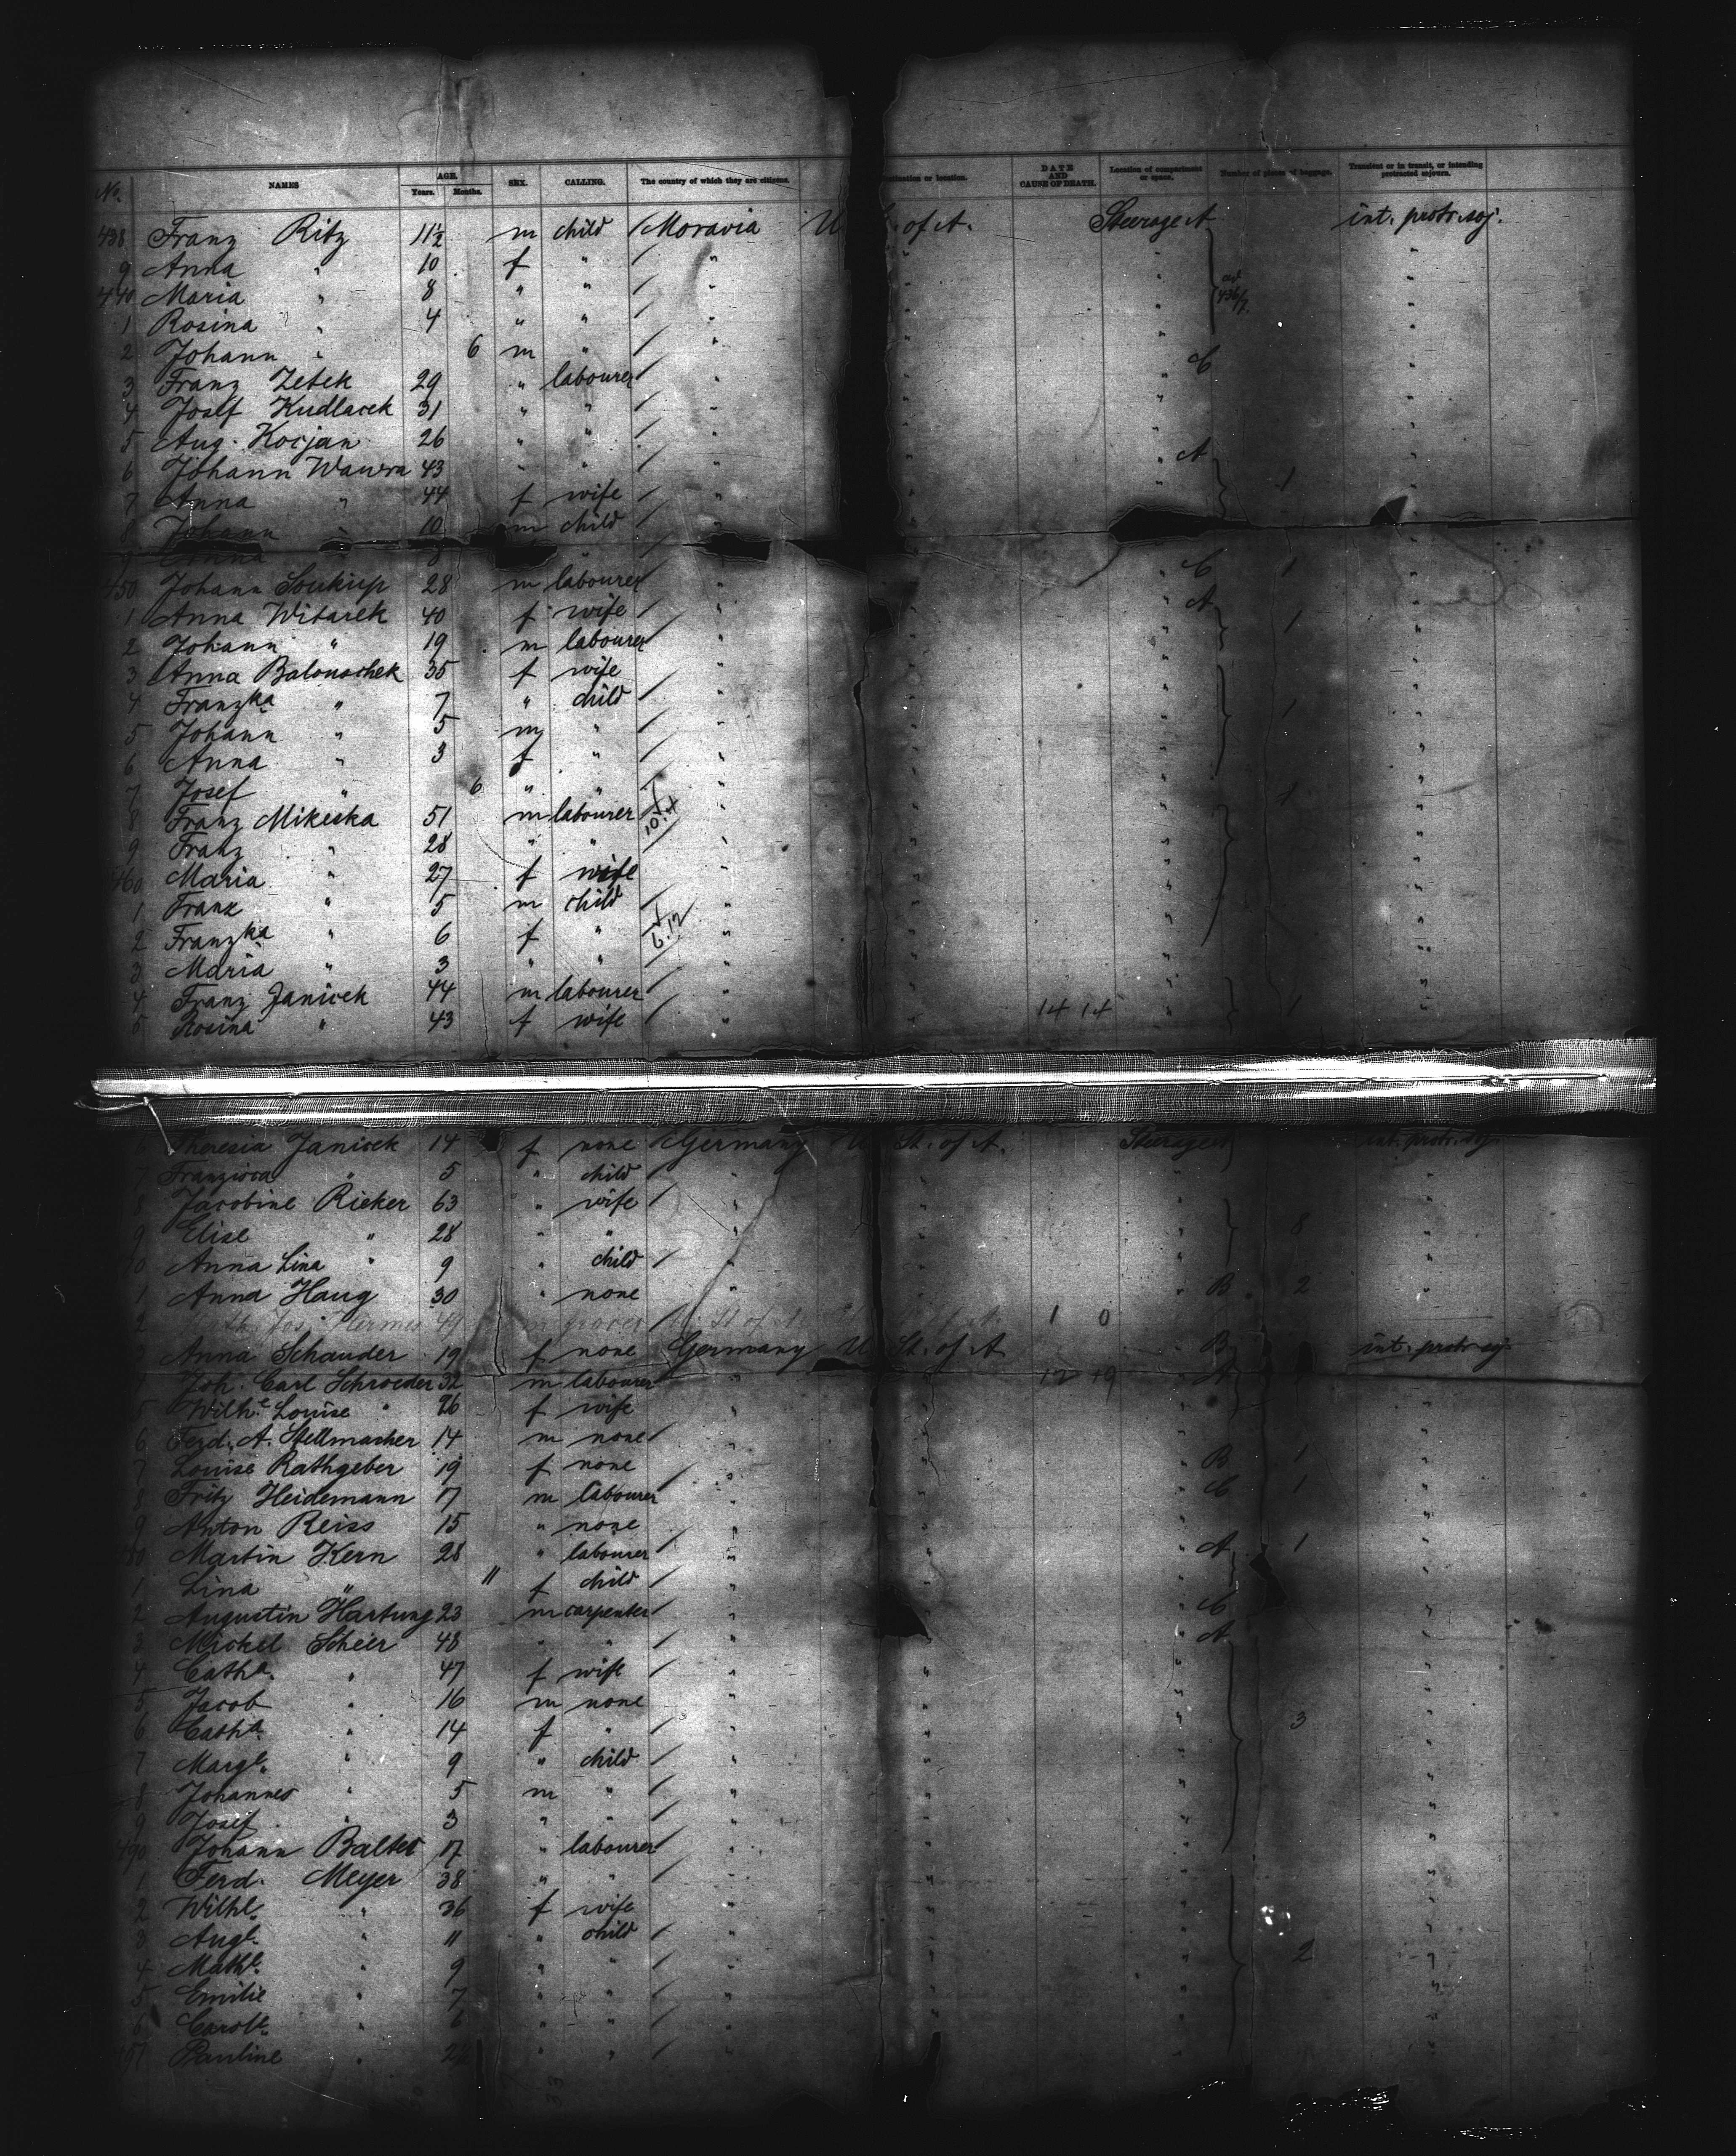 No. NAMES AGE. Years. Months. SEX. CALLING. The country of which they are citizens. or location. DATE AND CAUSE OF DEATH. Location of compartment or space. Number of pieces of baggage. Transient or in transit, or intending protracted sojourn.
438 Franz Ritz 11½ m child Moravia U of A. Steerage A. int. protr. soj.
9 Anna " 10 f " "
440 Maria " 8 " " "
1 Rosina " 4 " " "
2 Johann " 6 m " "
3 Franz Zetek 29 " labourer " " C
4 Josef Kudlacek 31 " " "
5 Aug. Kocjan 26 " " "
6 Johann Wawra 43 " " " " A 1
7 Anna " 44 f wife "
8 Johann " 10 m child "
9 8 "
450 Johann Soukup 28 m labourer " " C 1
1 Anna Witasek 40 f wife " " A 1
2 Johann " 19 m labourer "
3 Anna Balouschek 35 f wife "
4 Franzka " 7 " child " 1
5 Johann " 5 m " "
6 Anna " 3 f " "
7 Josef " 6 " " "
8 Franz Mikeska 51 m labourer "
9 Franz " 28 " " "
460 Maria " 27 f wife "
1 Franz " 5 m child "
2 Franzka " 6 f " "
3 Maria " 3 " " "
4 Franz Janicek 44 m labourer " 14 14 1
5 Rosina " 43 f wife "
Theresia Janicek 14 f none Germany U St. of A. Steerage int. protr. soj.
7 Francisca " 5 " child "
8 Jacobine Rieker 63 " wife "
9 Elise " 28 " " " 8
70 Anna Lina " 9 " child "
1 Anna Haug 30 " none " " B 2
2 Hermes 49 m grocer 1 0
3 Anna Schauder 19 f none Germany U St. of A B int. protr. soj.
Joh. Carl Schroeder 32 m labourer " 12 19 " A
5 Wilhe Louise " 26 f wife "
6 Ferd. A. Stellmacher 14 m none "
7 Louise Rathgeber 19 f none " " B 1
8 Fritz Heidemann 17 m labourer " " C 1
9 Anton Reiss 15 " none "
80 Martin Kern 28 " labourer " " A 1
1 Lina " 11 f child "
2 Augustin Hartung 23 m carpenter " " C
3 Michel Scheer 48 " " " " A
4 Catha. " 47 f wife "
5 Jacob " 16 m none "
6 Catha " 14 f " " 3
7 Marge. " 9 " child "
8 Johannes " 5 m " "
9 Josef " 3 " " "
490 Johann Baltes 17 " labourer "
1 Ferd. Meyer 38 " " "
2 Wilhe. " 36 f wife "
3 Auge. " 11 " child "
4 Mathe. " 9 " " " 2
5 Emilie " 7 " " "
6 Carole. " 6 " " "
497 Pauline " " " "